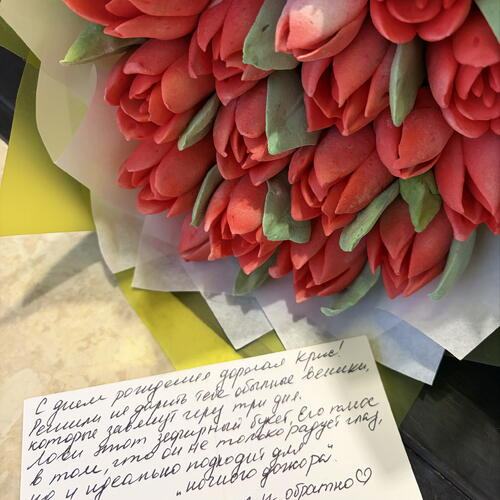 С днем рождения дорогая Крис!
Решили не дарить тебе обычные веники,
которые завянут через три дня.
Лови этот зефирный букет, его плюс
в том, что он не только радует глаз,
но и идеально подходит для
"ночного дожора".
и обратно♡